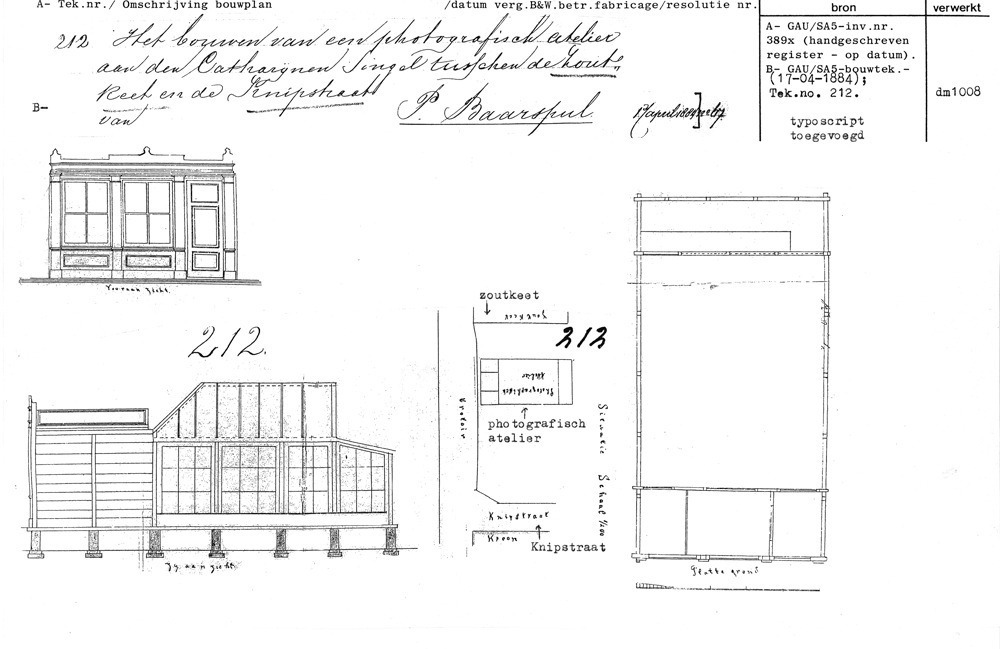 A- Tek.nr./ Omschrijving bouwplan /datum verg.B&W.betr.fabricage/resolutie nr.
bron verwerkt
212 Het bouwen van een photografisch atelier
aan den Catharijnen Singel tusschen de Zout-
keet en de Knipstraat
B-
van P. Baarspul. 17 april 1884
A- GAU/SA5-inv.nr.
389x (handgeschreven
register - op datum).
B- GAU/SA5-bouwtek.-
(17-04-1884);
Tek.no. 212.
dm1008
typoscript
toegevoegd
Vooraanzicht.
212.
Zij aanzicht.
zoutkeet
Zoutkeet
212
Photographisch
Atelier
photografisch
atelier
Trotoir
Situatie Schaal
Knipstraat
Kroon
Knipstraat
Platte grond